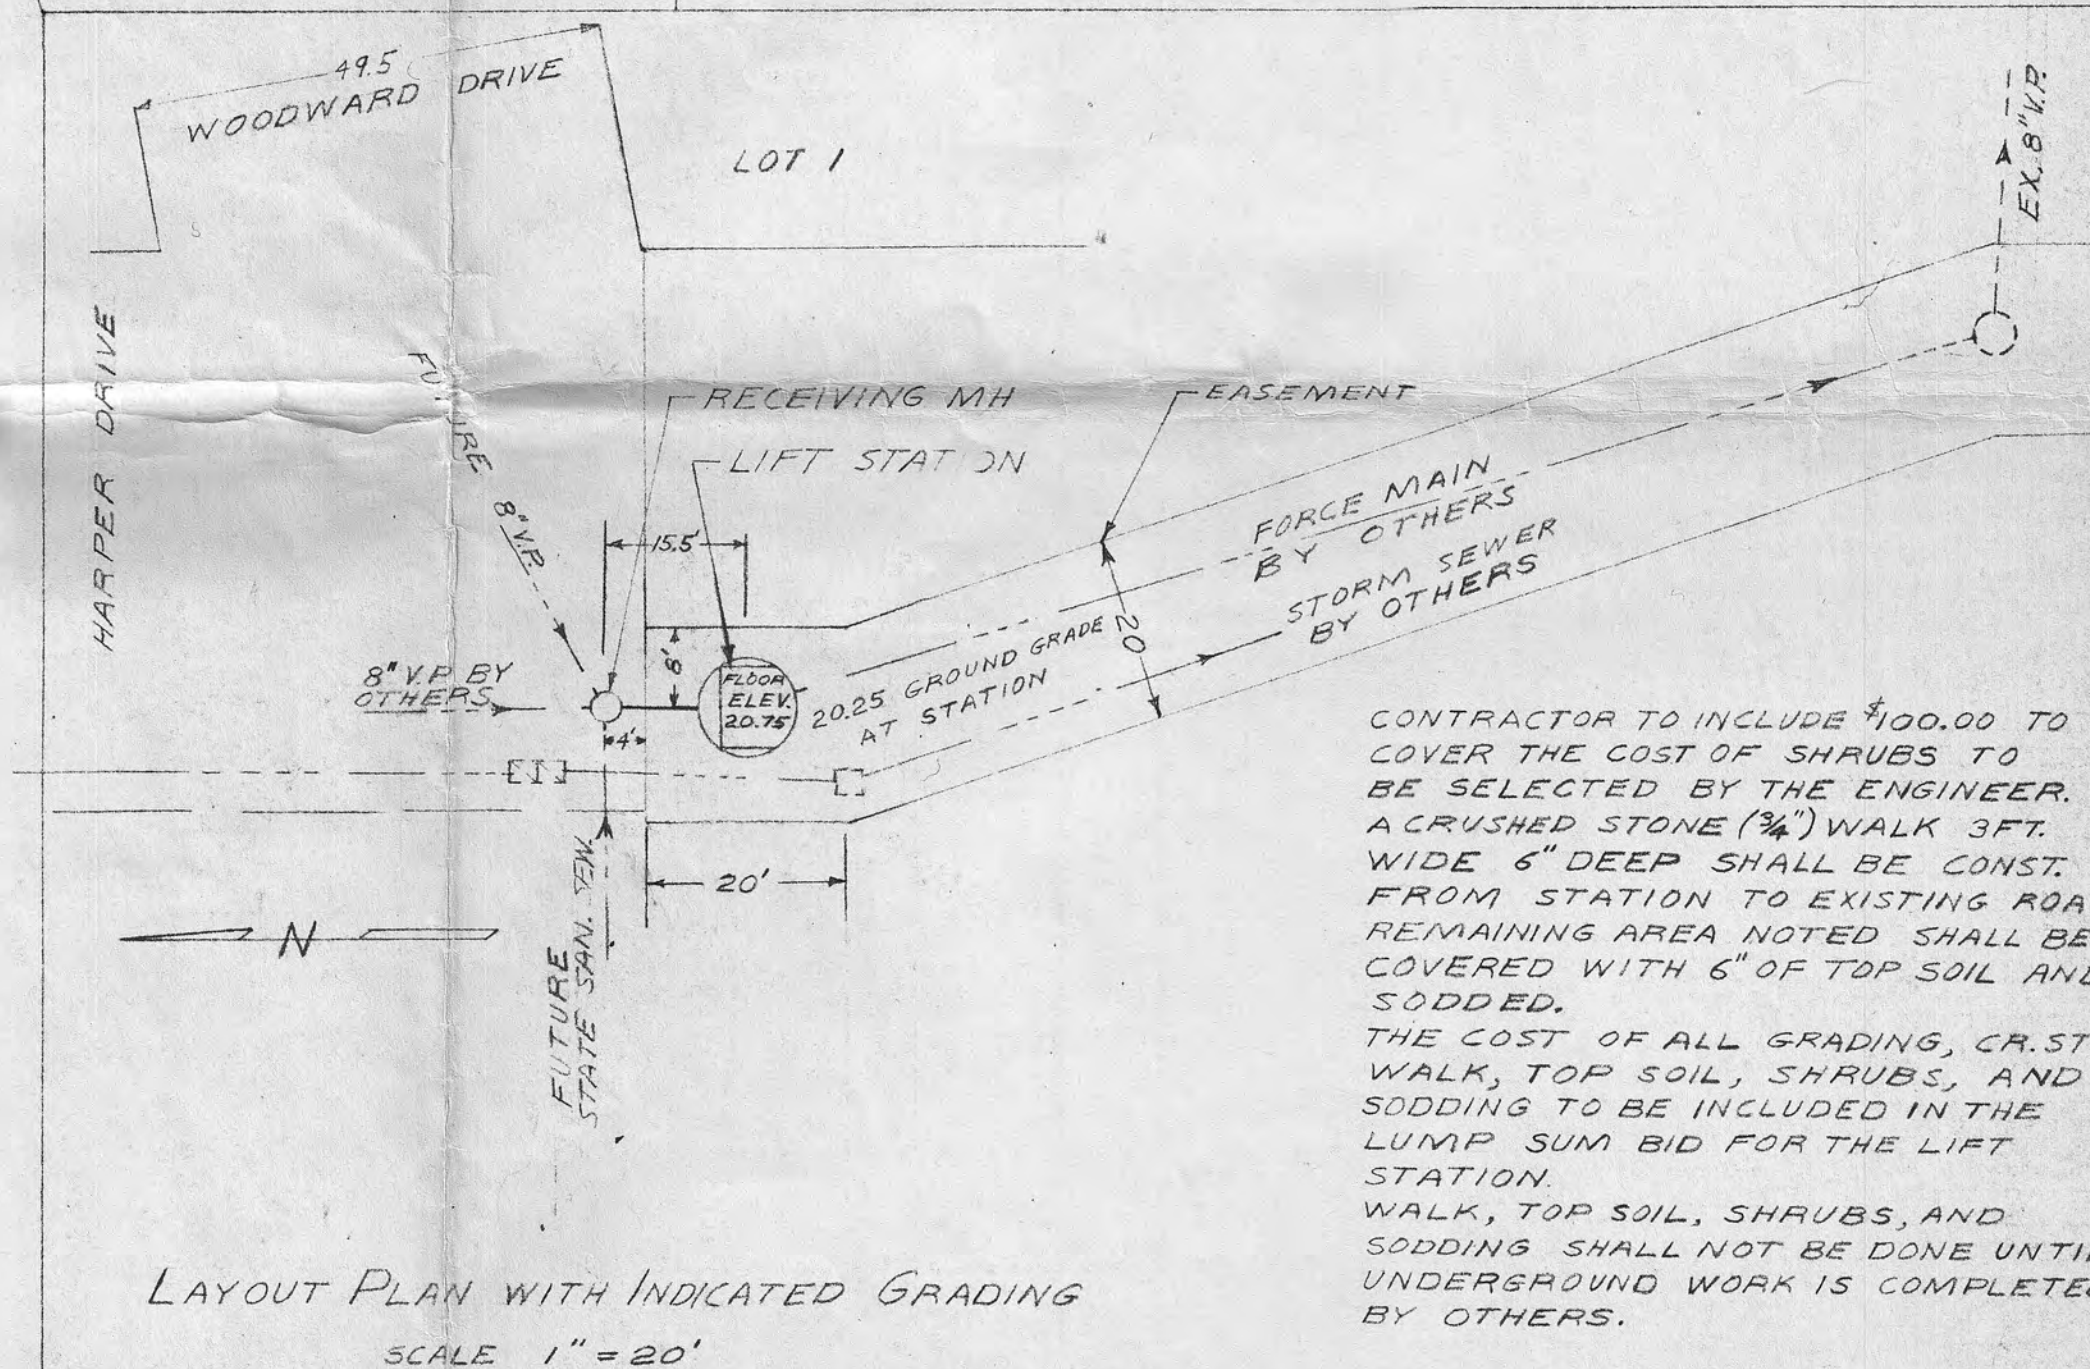 49.5
WOODWARD DRIVE
LOT 1
EX. 8" V.P.
HARPER DRIVE
FUTURE
8" V.P.
RECEIVING MH
LIFT STATION
EASEMENT
15.5'
8'
FORCE MAIN
BY OTHERS
STORM SEWER
BY OTHERS
20
20.25 GROUND GRADE
AT STATION
FLOOR
ELEV.
20.75
8" V.P. BY
OTHERS
4'
20'
N
FUTURE
STATE SAN. SEW.
CONTRACTOR TO INCLUDE $100.00 TO
COVER THE COST OF SHRUBS TO
BE SELECTED BY THE ENGINEER.
A CRUSHED STONE (3/4") WALK 3FT.
WIDE 6" DEEP SHALL BE CONST.
FROM STATION TO EXISTING ROA
REMAINING AREA NOTED SHALL BE
COVERED WITH 6" OF TOP SOIL AND
SODDED.
THE COST OF ALL GRADING, CR. ST
WALK, TOP SOIL, SHRUBS, AND
SODDING TO BE INCLUDED IN THE
LUMP SUM BID FOR THE LIFT
STATION.
WALK, TOP SOIL, SHRUBS, AND
SODDING SHALL NOT BE DONE UNTIL
UNDERGROUND WORK IS COMPLETED
BY OTHERS.
LAYOUT PLAN WITH INDICATED GRADING
SCALE 1" = 20'